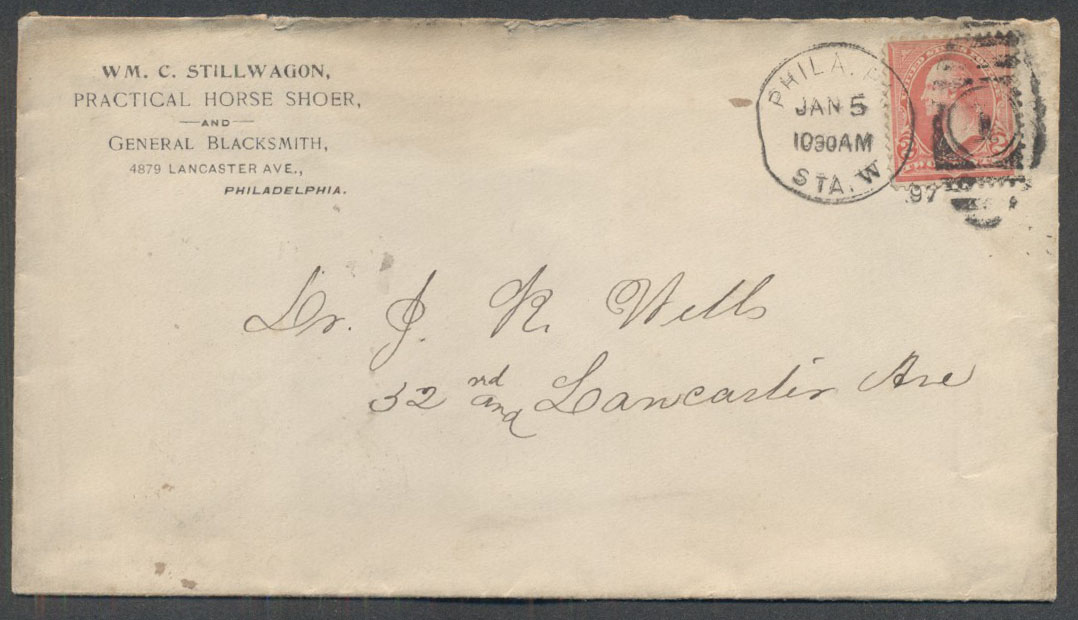 WM. C. STILLWAGON,
PRACTICAL HORSE SHOER,
AND
GENERAL BLACKSMITH,
4879 LANCASTER AVE.,
PHILADELPHIA.
PHILA. P
JAN 5
1030AM
STA. W
97
Dr. J. R. Wells
32 nd and Lancaster Ave